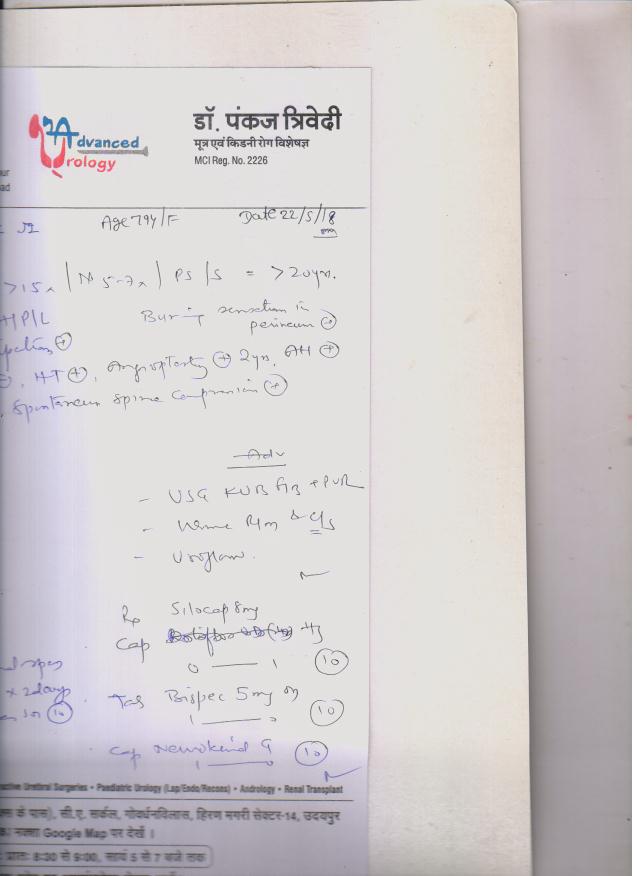 Advanced
Urology
डॉ. पंकज त्रिवेदी
मूत्र एवं किडनी रोग विशेषज्ञ
MCI Reg. No. 2226
ur
ad
Age 79y/F Date 22/5/18
>15x | N 5-7x | PS/S = >20yrs.
Burning sensation in
perineum +
+, HT +, Angioplasty + 2yrs,
Spontaneous Spine Compression +
Adv
- USG KUB + PVR
- Urine R/m & C/s
- Uroflow.
Rx Silocap 8mg
Cap
0 — 1 10
x 2 days
Tab Bispec 5mg
1 — 0 10
Cap Neurokind G 10
1 — 0
ctive Urethral Surgeries • Paediatric Urology (Lap/Endo/Recons) • Andrology • Renal Transplant
के पास), सी.ए. सर्कल, गोवर्धनविलास, हिरण मगरी सेक्टर-14, उदयपुर
नक्शा Google Map पर देखें ।
प्रातः 8:30 से 9:00, सायं 5 से 7 बजे तक